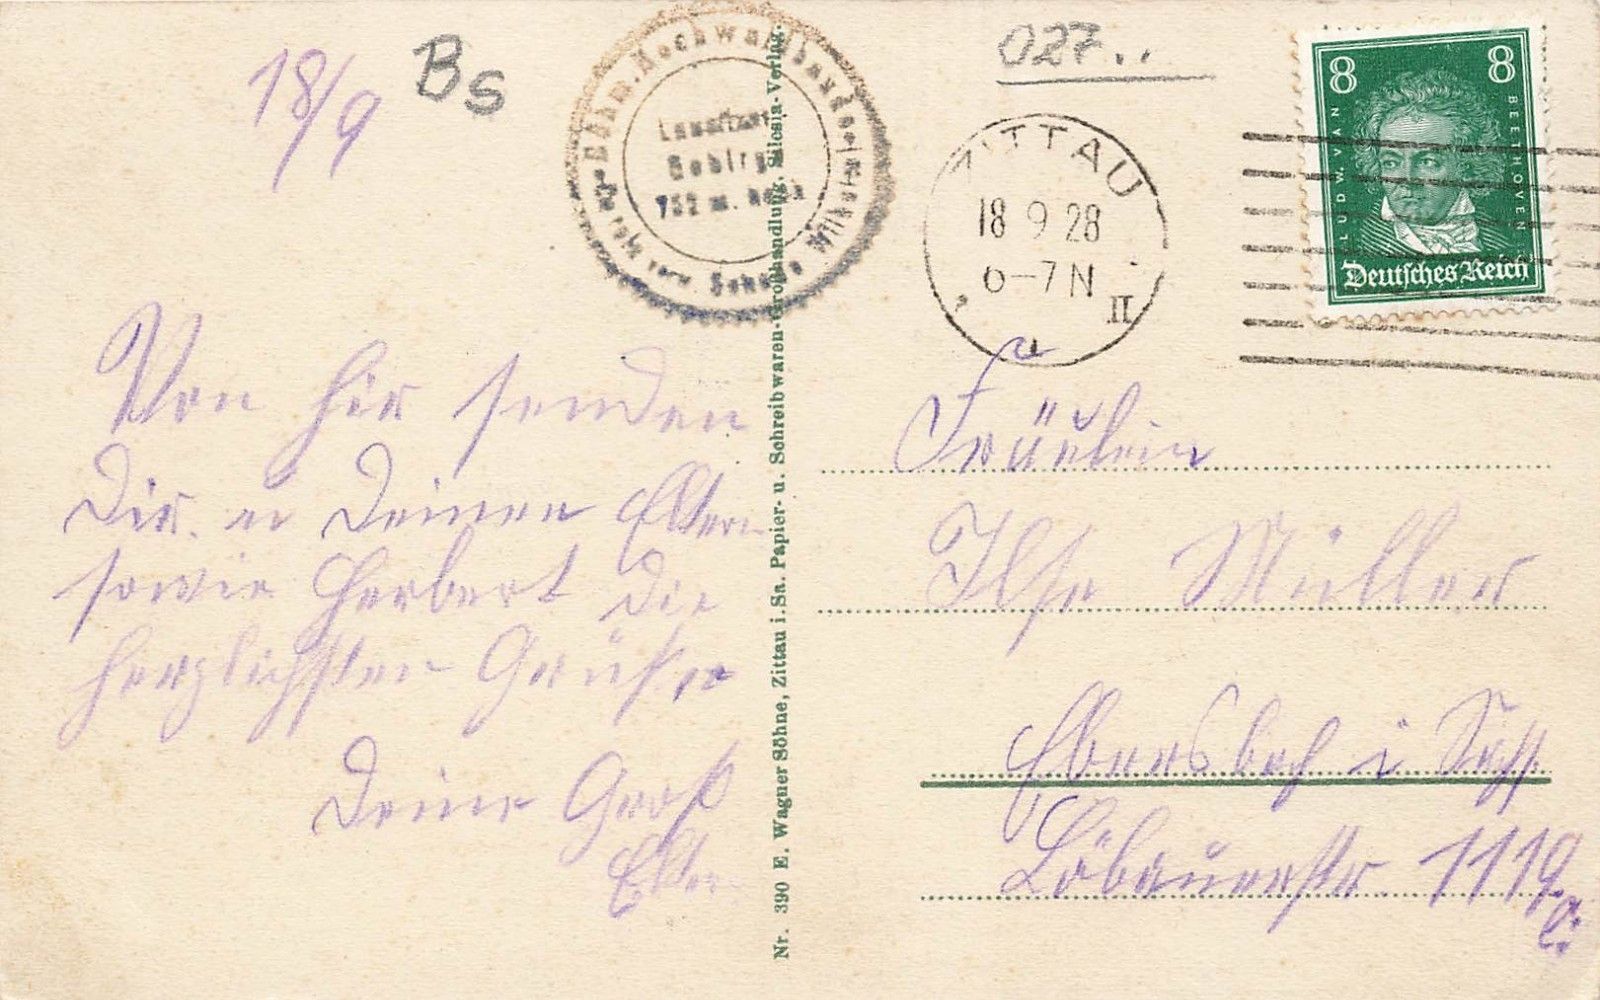 18/9
Bs
Böhm. Hochwaldbaude
Lausitzer
Gebirge
752 m. hoch
Von hir senden
Dir. u Deinen Eltern
sowie Herbert die
herzlichsten Grüße
Deine Groß
Eltern
Nr. 390 E. Wagner Söhne, Zittau i. Sa. Papier- u. Schreibwaren-Großhandlung. Silesia-Verlag.
027..
ZITTAU
18 9 28
6-7 N
II
8 8
LUDW. VAN
BEETHOVEN
Deutsches Reich
Fräulein
Ilse Müller
Ebersbach i Sachs
Löbauerstr. 1119